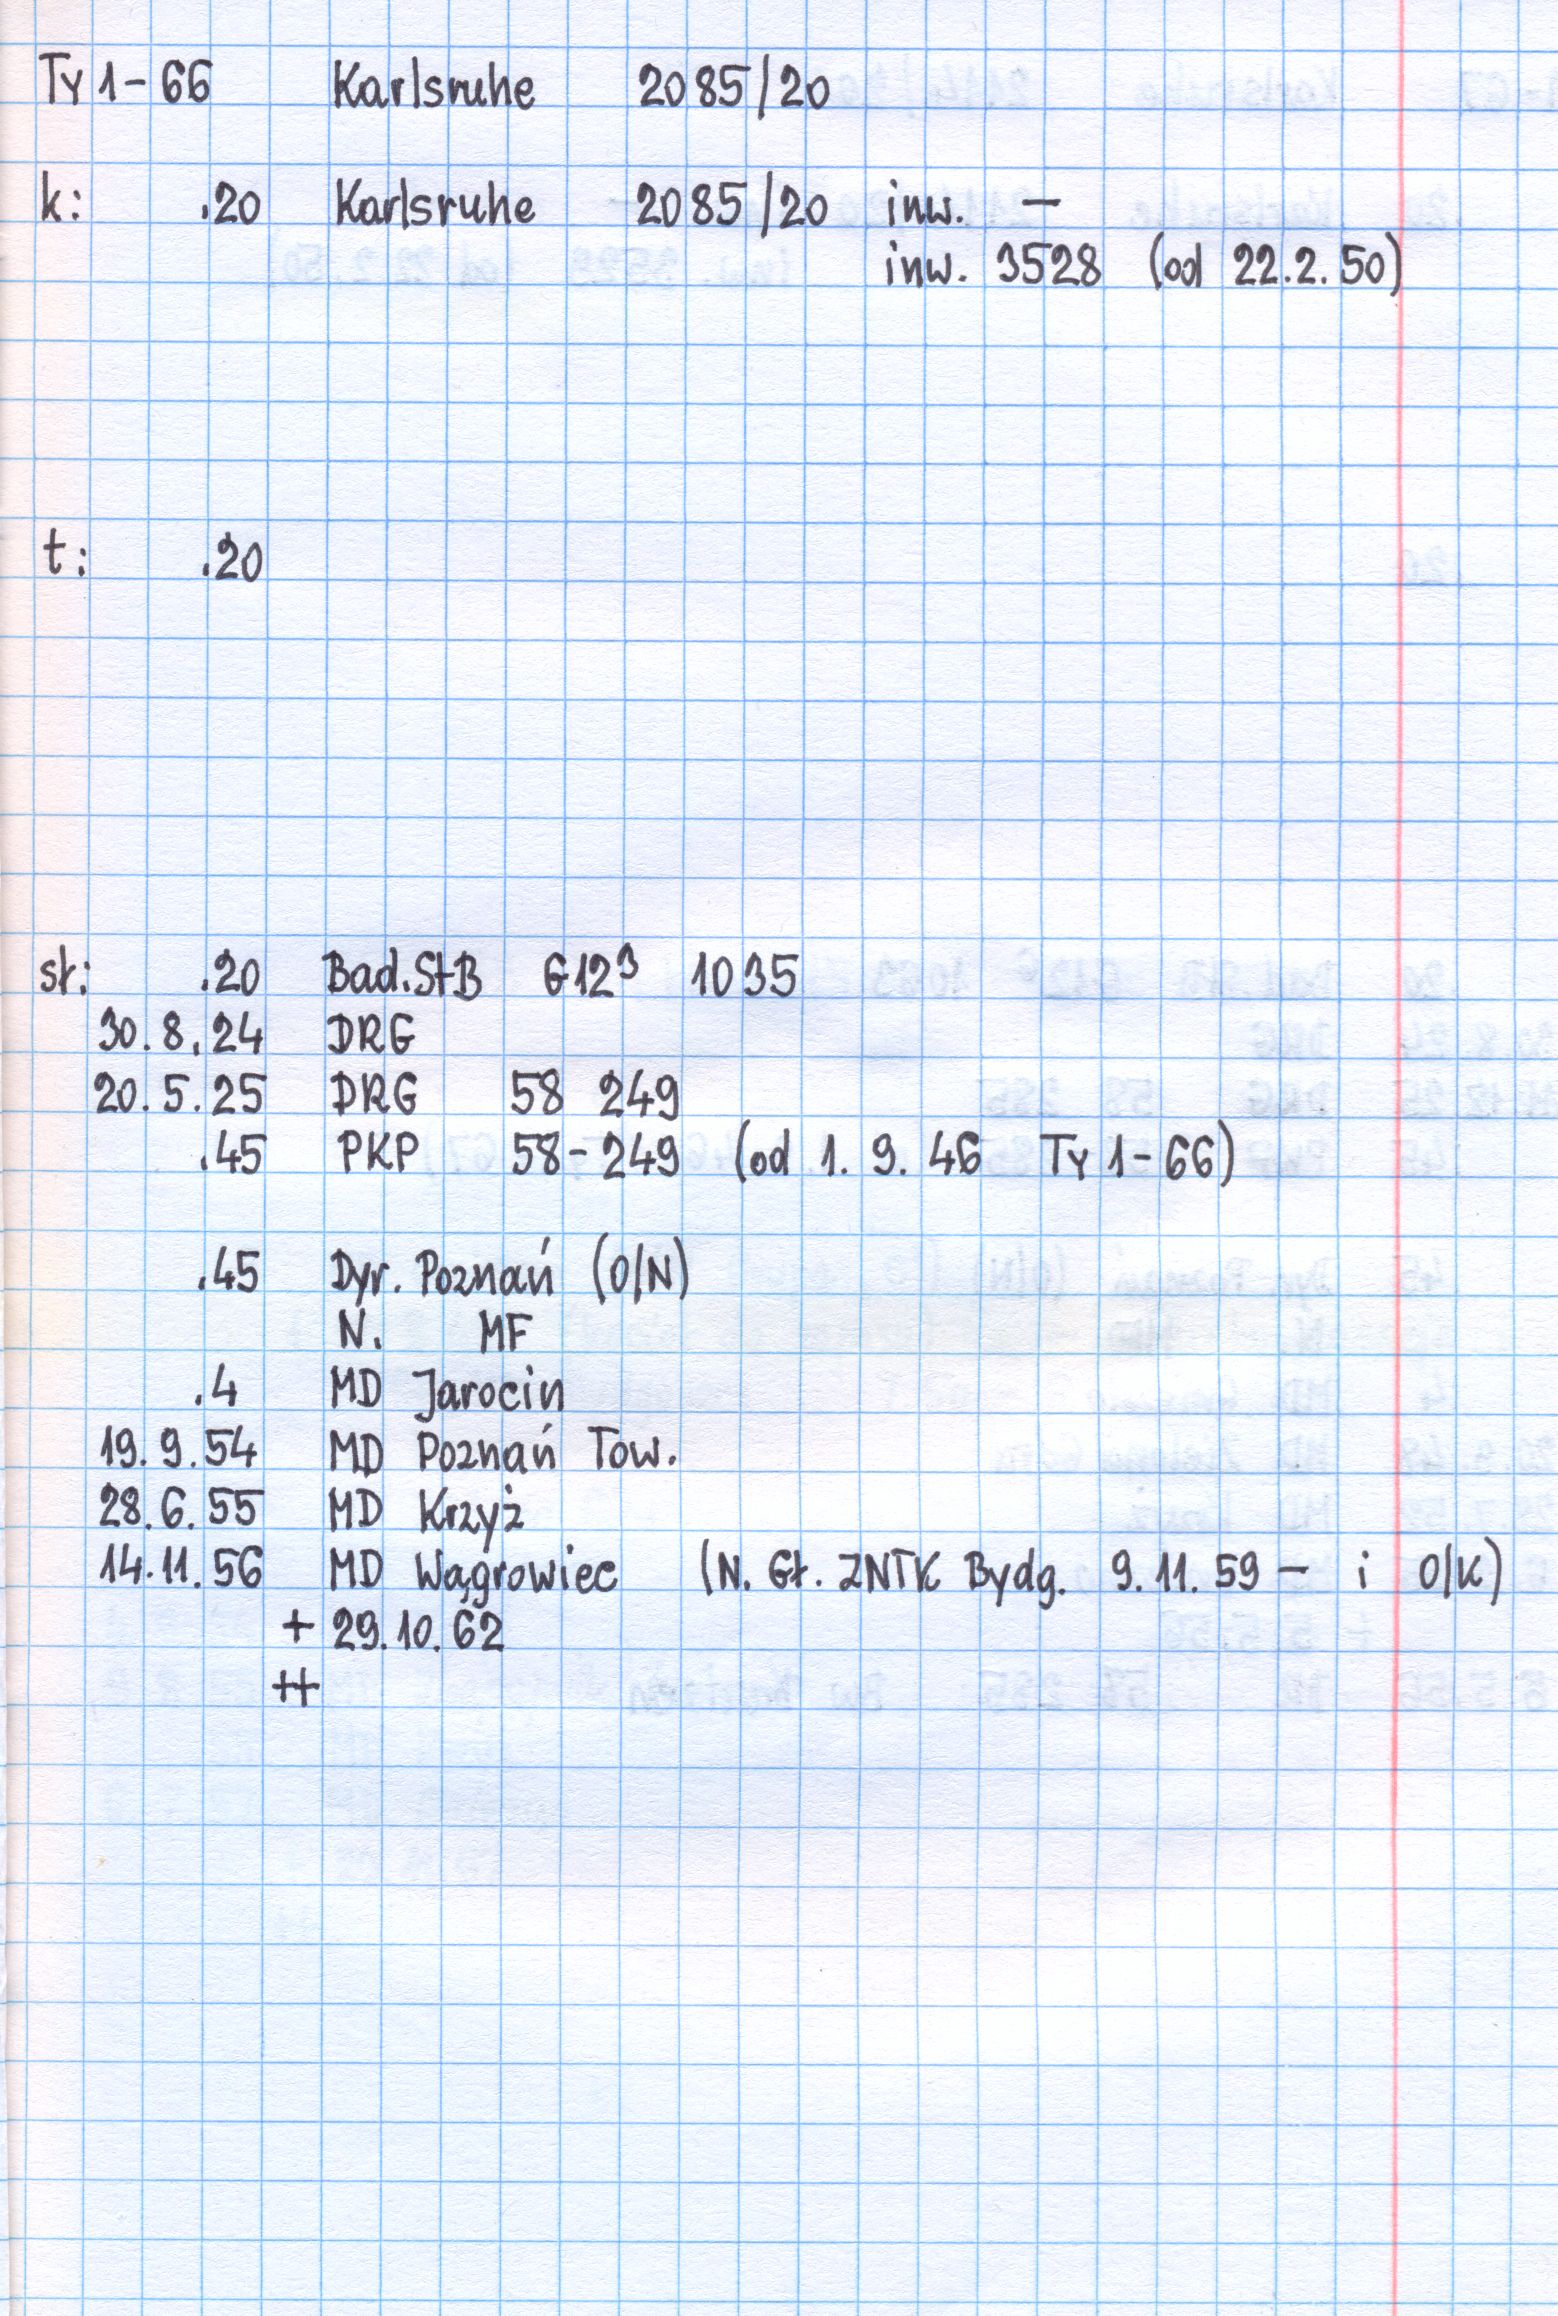 Ty 1-66 Karlsruhe 2085/20
k: .20 Karlsruhe 2085/20 inw. —
inw. 3528 (od 22.2.50)
t: .20
st: .20 Bad.StB G12³ 1035
30.8.24 DRG
20.5.25 DRG 58 249
.45 PKP 58-249 (od 1.9.46 Ty 1-66)
.45 Dyr. Poznań (O/N)
N. MF
.4 MD Jarocin
19.9.54 MD Poznań Tow.
28.6.55 MD Krzyż
14.11.56 MD Wągrowiec (N. Gł. ZNTK Bydg. 9.11.59 — i O/K)
+ 29.10.62
++